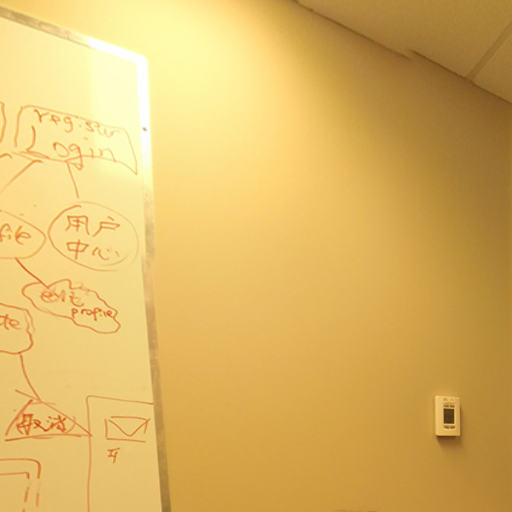 register
Login
用户
中心
edit
profile
取消